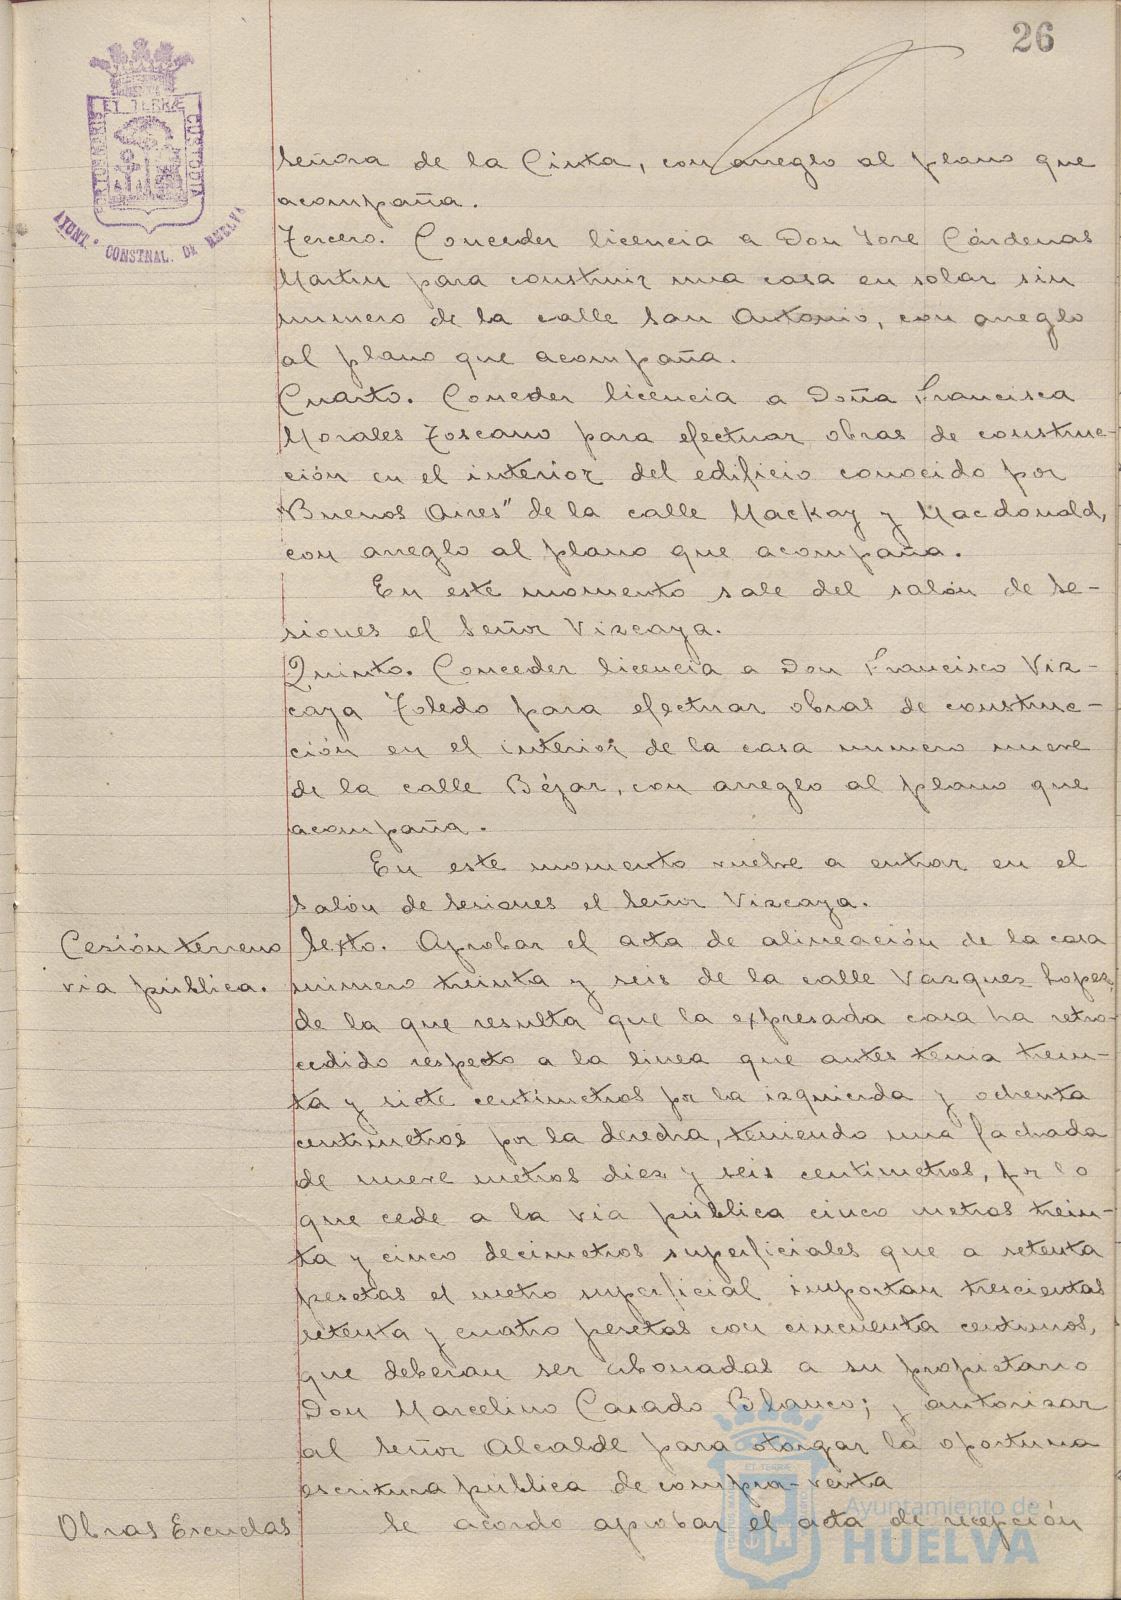 26
ET TERRÆ
PORTUS MARIS
CUSTODIA
AYUNT. CONSTNAL. DE HUELVA
Señora de la Cinta, con arreglo al plano que
acompaña.
Tercero. Conceder licencia a Don José Cárdenas
Martin para construir una casa en solar sin
numero de la calle San Antonio, con arreglo
al plano que acompaña.
Cuarto. Conceder licencia a Doña Francisca
Morales Toscano para efectuar obras de construc-
ción en el interior del edificio conocido por
"Buenos Aires" de la calle Mackay y Macdonald,
con arreglo al plano que acompaña.
En este momento sale del salón de Se-
siones el Señor Vizcaya.
Quinto. Conceder licencia a Don Francisco Viz-
caya Toledo para efectuar obras de construc-
ción en el interior de la casa numero nueve
de la calle Béjar, con arreglo al plano que
acompaña.
En este momento vuelve a entrar en el
Salón de Sesiones el Señor Vizcaya.
Cesión terreno
via pública.
Sexto. Aprobar el acta de alineación de la casa
numero treinta y seis de la calle Vazquez Lopez,
de la que resulta que la expresada casa ha retro-
cedido respecto a la linea que antes tenia trein-
ta y siete centimetros por la izquierda y ochenta
centimetros por la derecha, teniendo una fachada
de nueve metros diez y seis centimetros, por lo
que cede a la via pública cinco metros trein-
ta y cinco decimetros superficiales que a setenta
pesetas el metro superficial importan trescientas
setenta y cuatro pesetas con cincuenta centimos,
que deberan ser abonadas a su propietario
Don Marcelino Casado Blanco; y autorizar
al Señor Alcalde para otorgar la oportuna
escritura pública de compra-venta
Obras Escuelas
Se acordo aprobar el acta de recepción
Ayuntamiento de
HUELVA